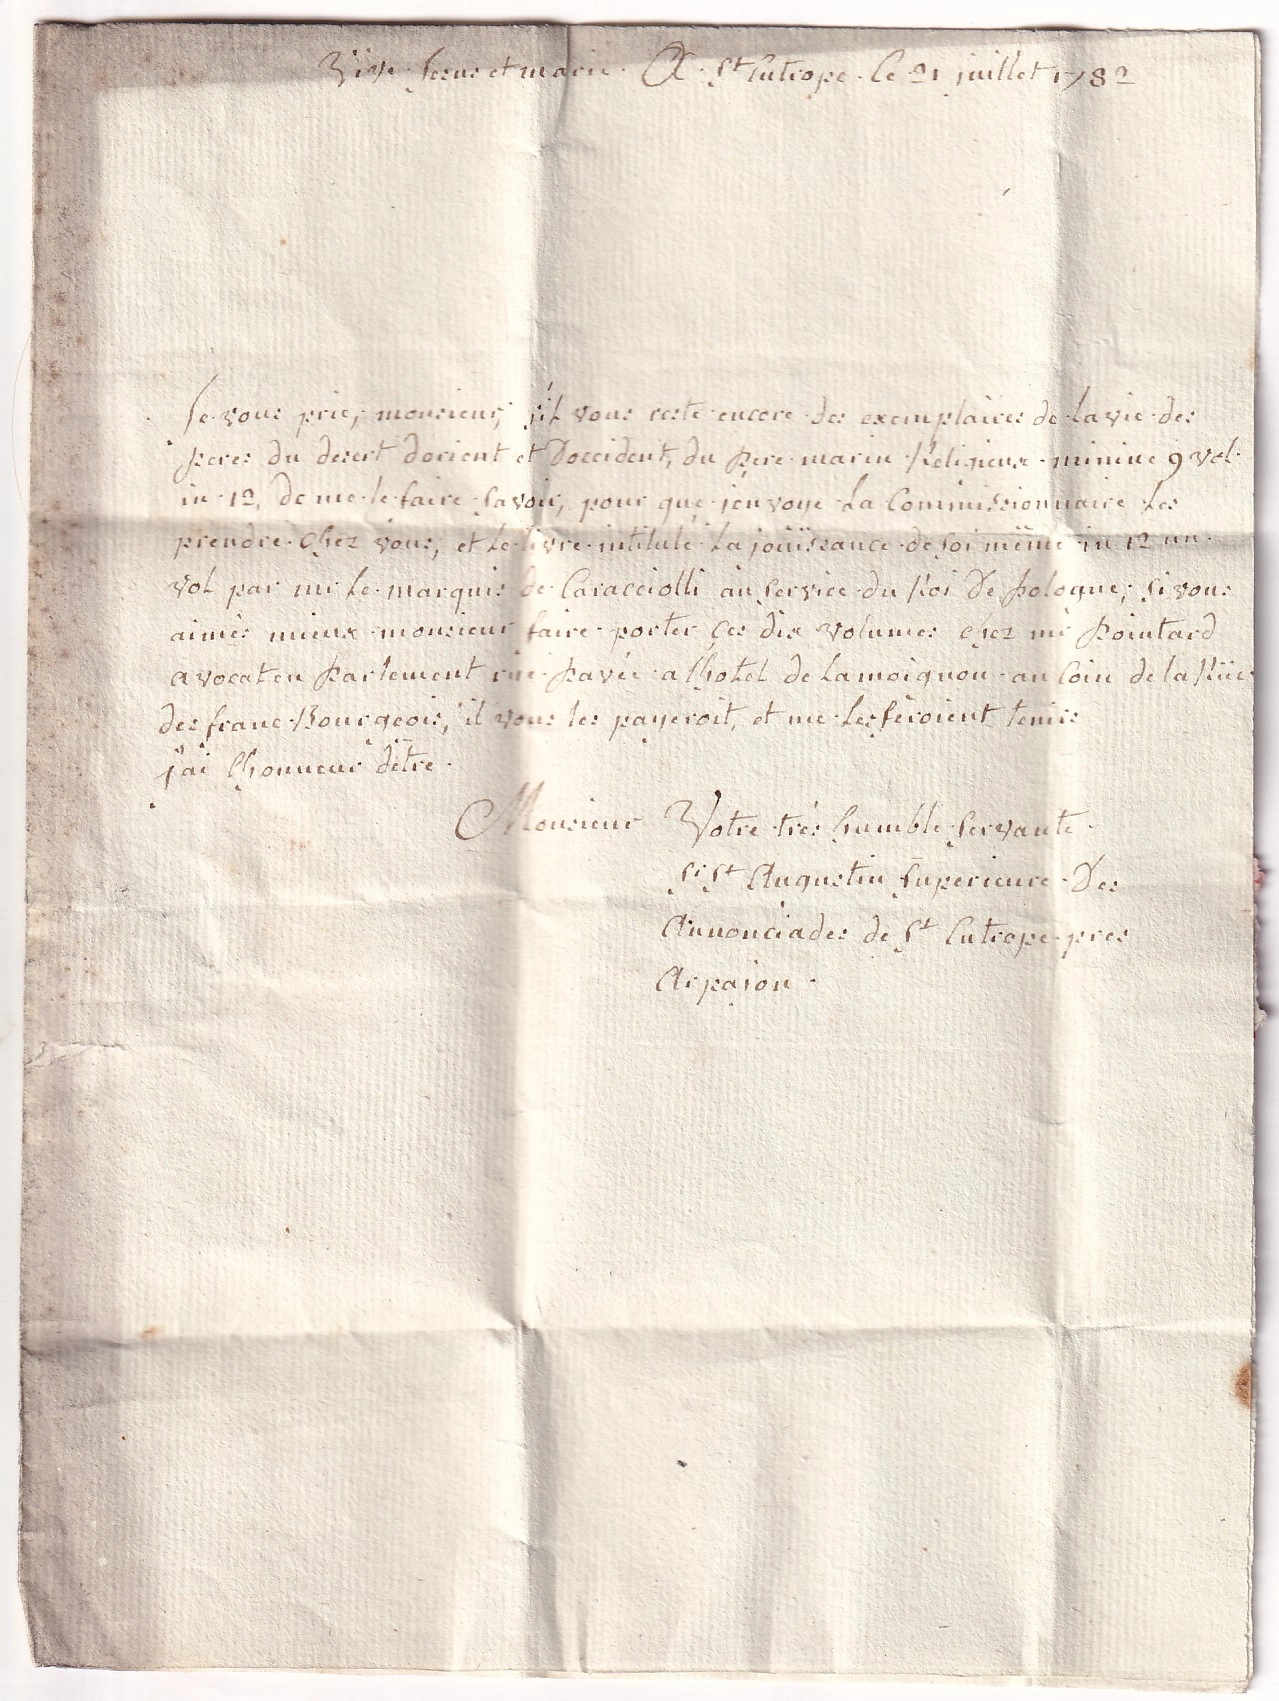 Vive Jesus et marie. A St Eutrope. Ce 21 juillet 1782
Je vous prie, monsieur, s'il vous reste encore des exemplaires de la vie des
peres du desert dorient et D'occident, du pere marin Réligieux minime 9 vol.
in 12, de me le faire savoir, pour que j'envoye la Commissionnaire les
prendre chez vous, et le livre intitulé la joüissance de soi même in 12 un
vol par mr le marquis de Caracciolli au service du Roi De pologne, si vous
aimés mieux monsieur faire porter ces dix volumes chez mr pointard
avocat en parlement rüe pavée a l'hotel de lamoignon au coin de la Rüe
des franc-Bourgeois, il vous les payeroit, et me les feroient tenirs
j'ai l'honneur dêtre.
Monsieur Votre trés humble servante.
Sr St Augustin superieure Des
Annonciades de St Eutrope pres
Arpajon.